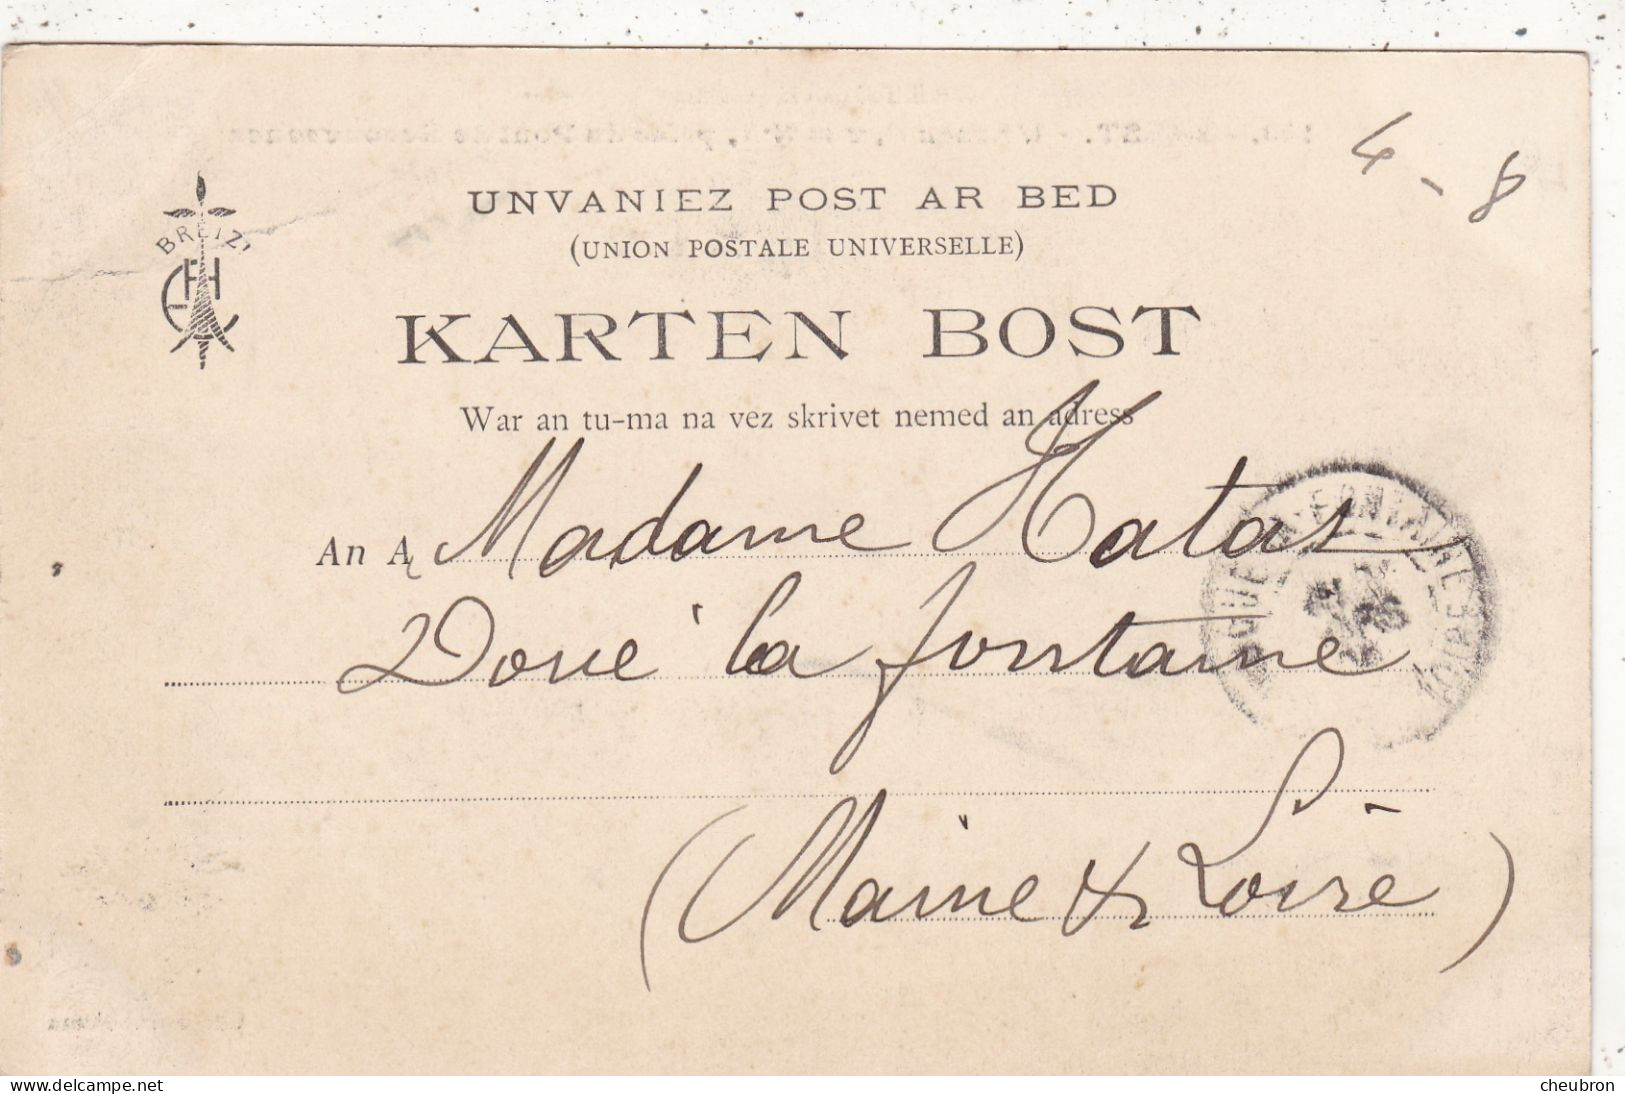 4-8
UNVANIEZ POST AR BED
(UNION POSTALE UNIVERSELLE)
BREIZ
KARTEN BOST
War an tu-ma na vez skrivet nemed an adress
An A Madame Hatas
Doué la fontaine
(Maine & Loire)
FONTAINE
delcampe.net
cheubron